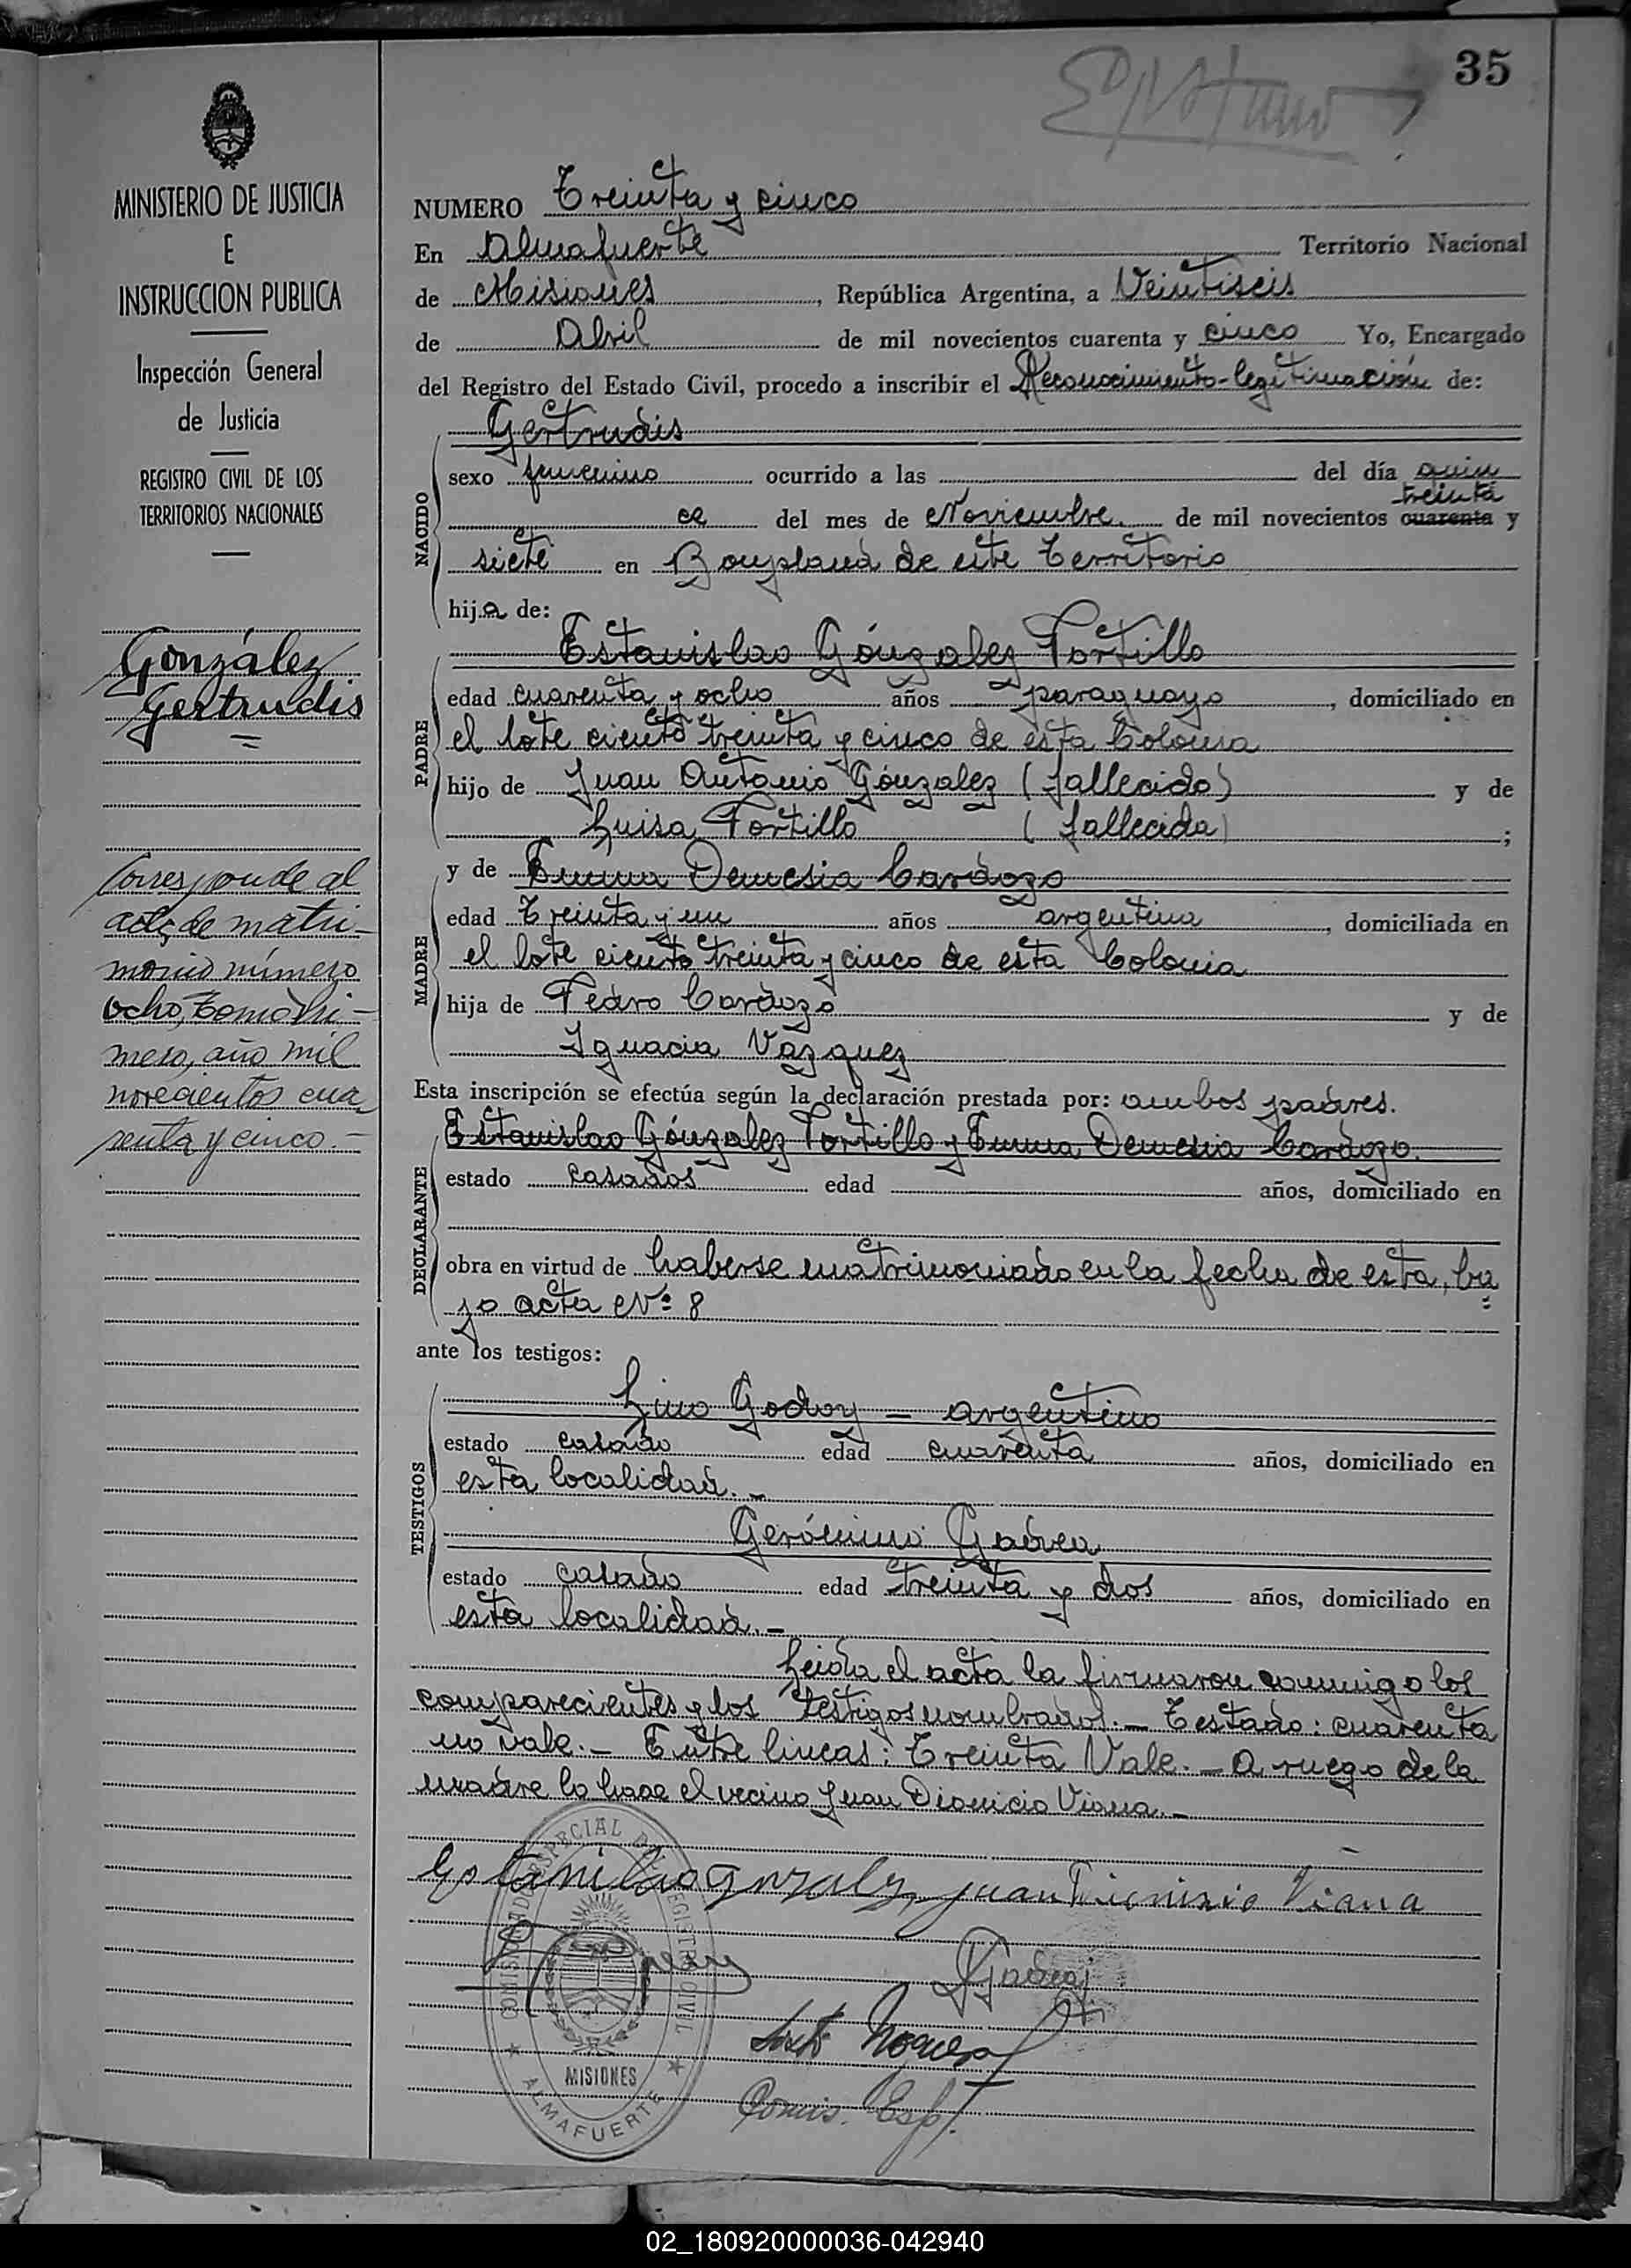 35
MINISTERIO DE JUSTICIA
E
INSTRUCCION PUBLICA
Inspección General
de Justicia
REGISTRO CIVIL DE LOS
TERRITORIOS NACIONALES
González
Gertrudis
Corresponde al
acta de matri-
monio número
ocho, Tomo Pri-
mero, año mil
novecientos cua
renta y cinco.-
NUMERO Treinta y cinco
En Almafuerte Territorio Nacional
de Misiones, República Argentina, a Veintiseis
de Abril de mil novecientos cuarenta y cinco Yo, Encargado
del Registro del Estado Civil, procedo a inscribir el Reconocimiento-legitimación de:
Gertrudis
NACIDO
sexo femenino ocurrido a las del día quin
treinta
ce del mes de Noviembre. de mil novecientos cuarenta y
siete en Bonpland de este Territorio
hija de:
Estanislao Gónzalez Portillo
PADRE
edad cuarenta y ocho años paraguayo, domiciliado en
el lote ciento treinta y cinco de esta Colonia
hijo de Juan Antonio Gónzalez (fallecido) y de
Luisa Portillo (fallecida);
y de Emma Demesia Cardozo
MADRE
edad Treinta y un años argentina, domiciliada en
el lote ciento treinta y cinco de esta Colonia
hija de Pedro Cardozo y de
Ignacia Vazquez
Esta inscripción se efectúa según la declaración prestada por: ambos padres.
DECLARANTE
Estanislao Gónzalez Portillo y Emma Demesia Cardozo.
estado casados edad años, domiciliado en
obra en virtud de haberse matrimoniado en la fecha de esta, ba
jo acta Nº 8
ante los testigos:
TESTIGOS
Lino Godoy = argentino
estado casado edad cuarenta años, domiciliado en
esta localidad.-
Gerónimo
estado casado edad treinta y dos años, domiciliado en
esta localidad.-
Leida el acta la firmaron conmigo los
comparecientes y los testigos nombrados.- Testado: cuarenta
no vale.- Entre lineas: Treinta Vale.- A ruego de la
madre lo hace el vecino Juan Dionicio Viana.-
Estanislao Gonzalez Juan Dionisio Viana
COMISARIADO ESPECIAL DEL REGISTRO CIVIL
MISIONES
ALMAFUERTE
Comis. Esp.
02_180920000036-042940